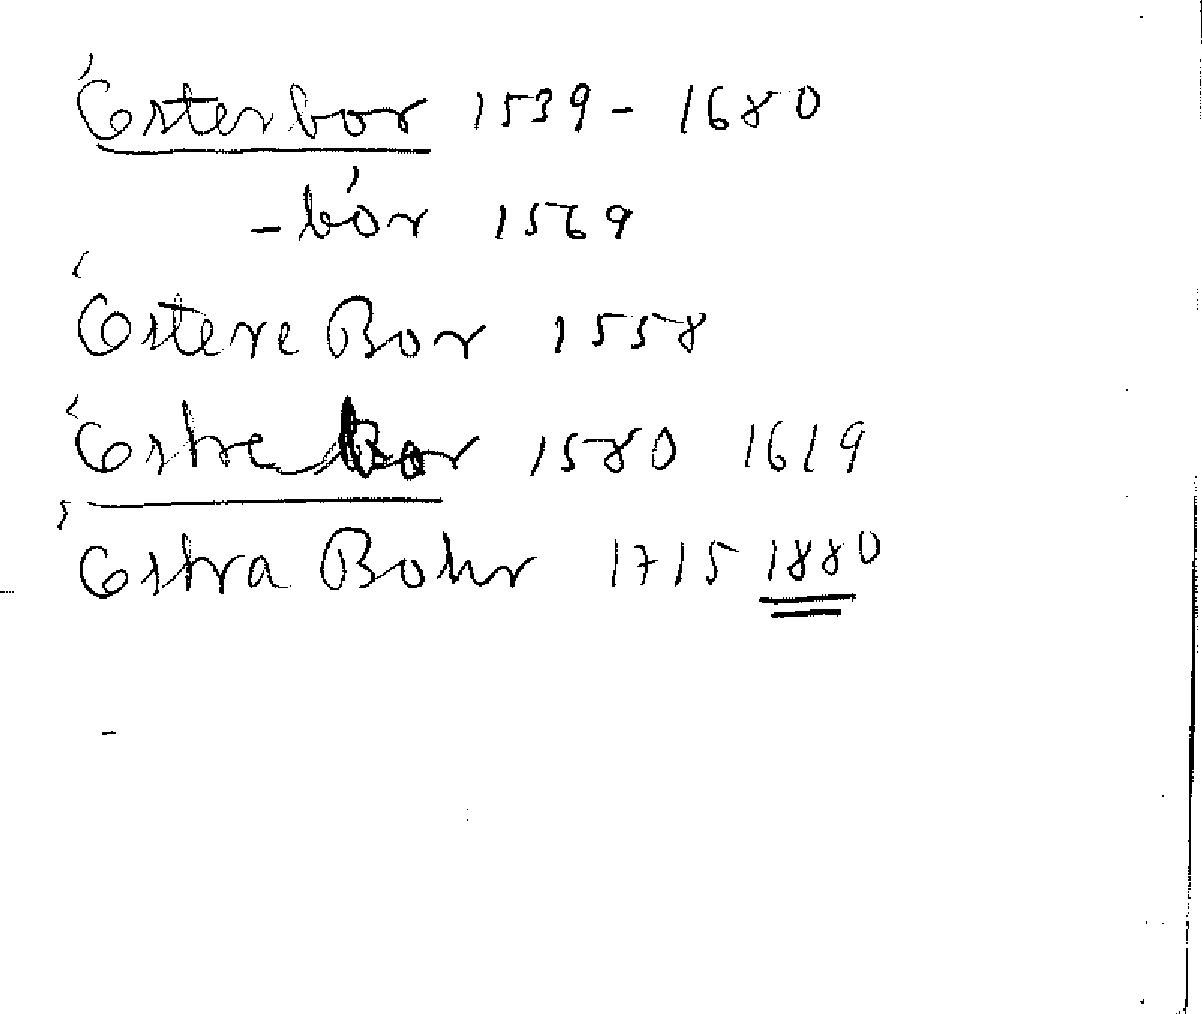 Esterbor 1539 - 1680
- bór 1569
Estere Bor 1558
Estre bor 1580 1619
Estra Bohr 1715 1880